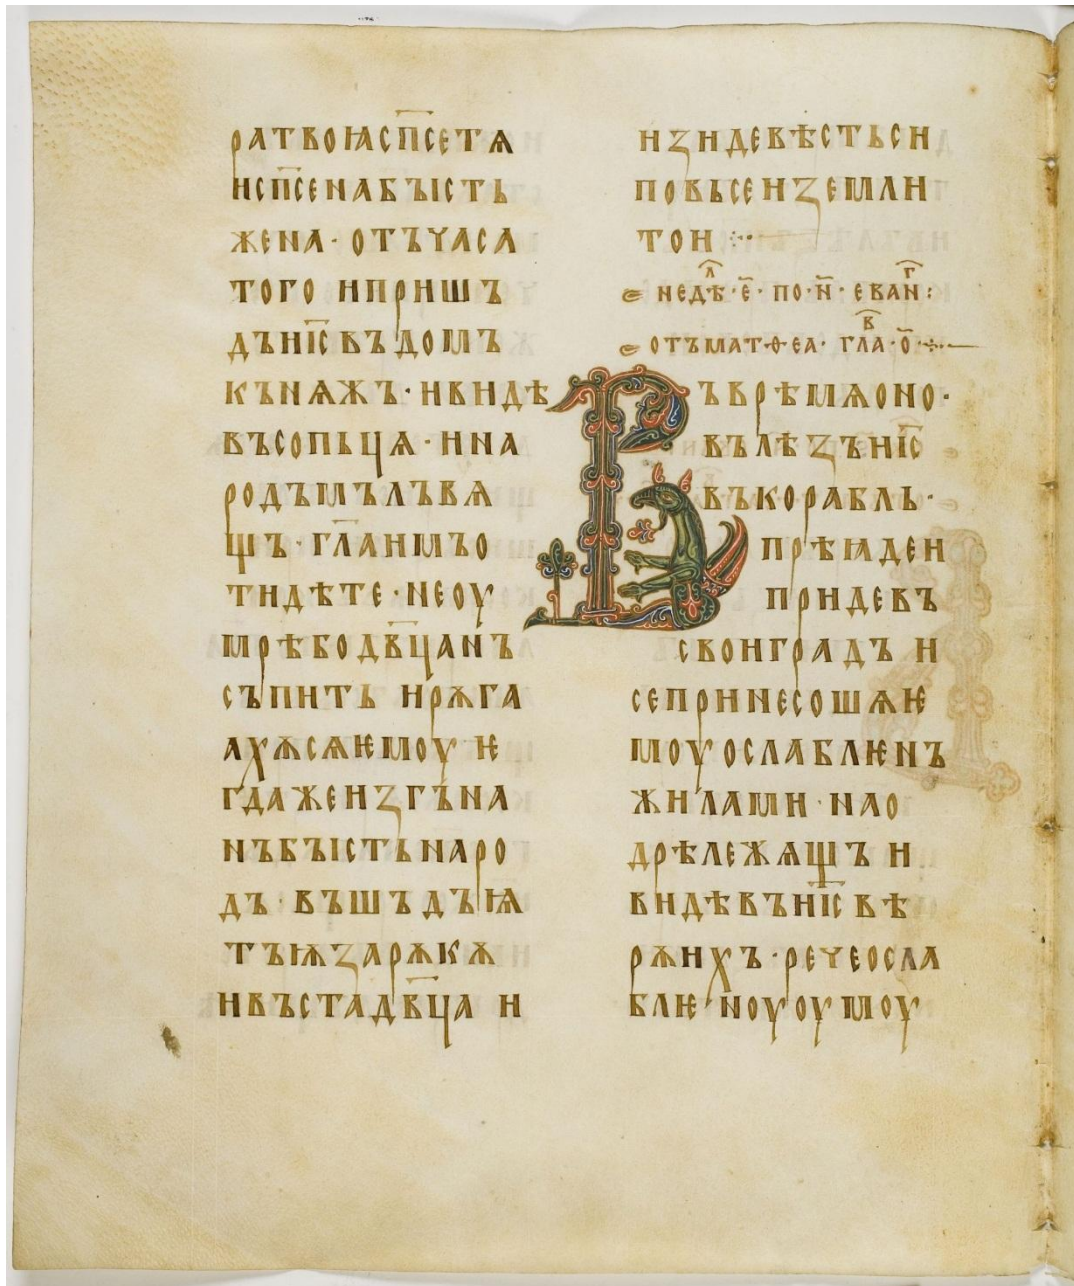 ратвоꙗсп҃сетѧ
исп҃сенабꙑсть
жена· отъчаса
того ипришъ
дъиі҃свъдомъ
кънѧжъ· ивидѣ
въсопьцѧ· ина
родъмълъвѧ
щь· гл҃аимъо
тидѣте· неоу
мрѣбодв҃цанъ
съпить ирѫга
ахѫсѧѥмоу· ѥ
гдажеизгъна
нъбꙑстьнаро
дъ· въшъдъꙗ
тъѭзарѫкѫ
ивъстадв҃ца и
изидевѣстьси
повьсеиземли
тои ⁘
недⷧѣ· е҃· по· н҃· еваⷢн҃:
отъматѳеа· глⷡа· о҃·
Въврѣмѧоно·
вълѣзъиі҃с
въкорабль·
прѣѩдеи
придевъ
своиградъ и
сепринесошѧѥ
моуослаблѥнъ
жилами· нао
дрѣлежѧщь и
видѣвъиі҃свѣ
рѫихъ· речеосла
блѥноуоумоу